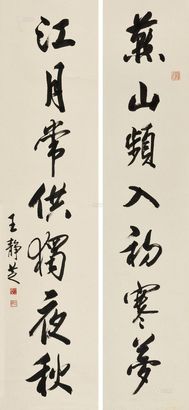 燕山頻入初寒夢
江月常供獨夜秋
王靜芝